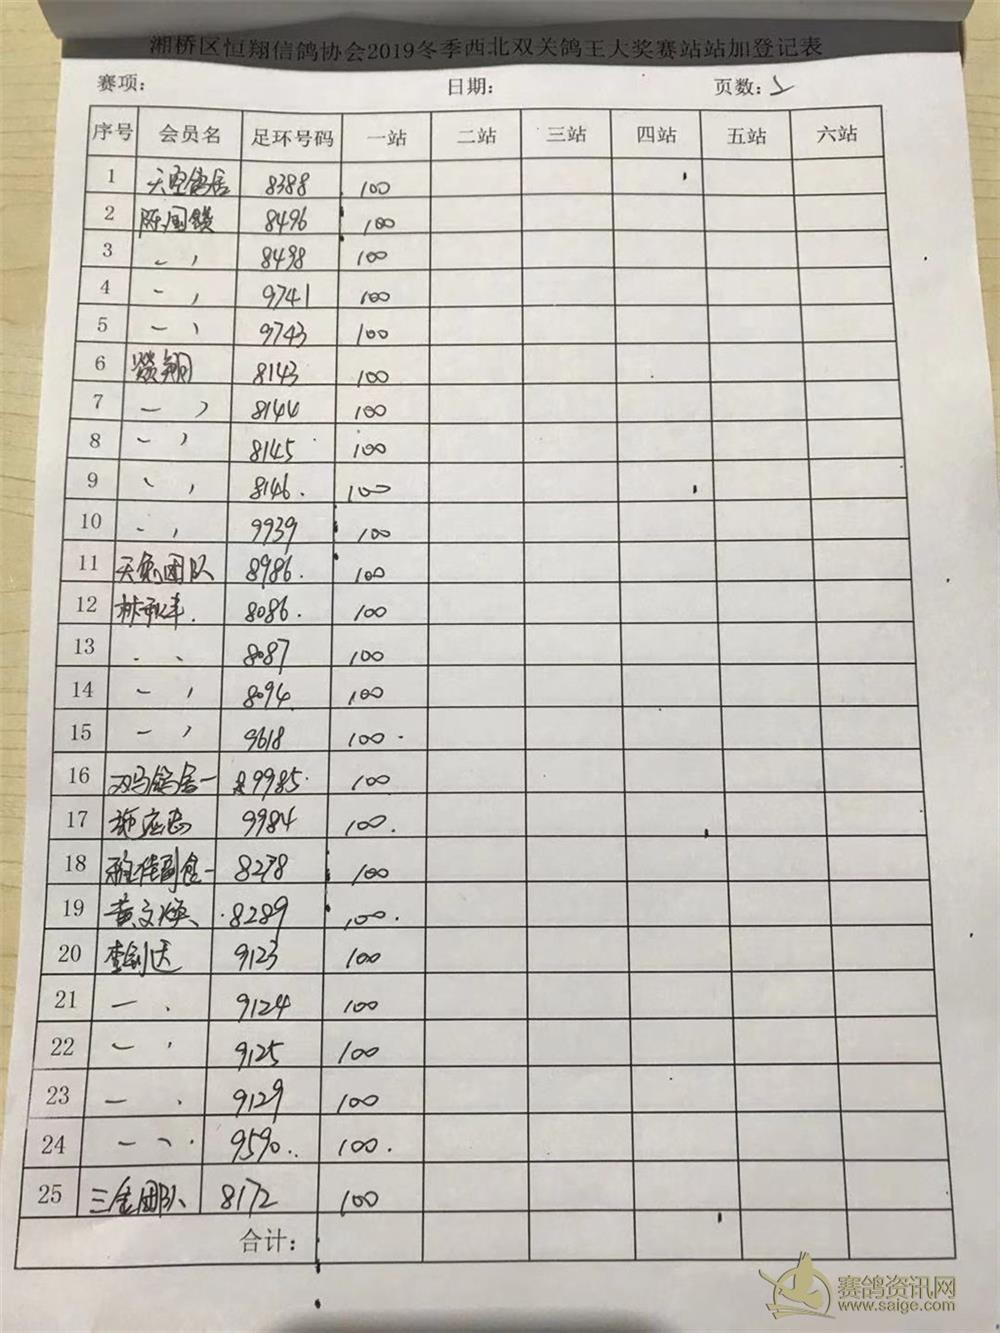 湘桥区恒翔信鸽协会2019冬季西北双关鸽王大奖赛站站加登记表
赛项: 日期: 页数:
序号 会员名 足环号码 一站 二站 三站 四站 五站 六站
1 天空鸽居 8388 100
2 陈国镁 8496 100
3 8498 100
4 9741 100
5 9743 100
6 翔 8143 100
7 8144 100
8 8145 100
9 8146. 100
10 9939 100
11 团队 8986. 100
12 林 8086. 100
13 8087 100
14 8094 100
15 9618 100.
16 双马鸽居一 9985. 100
17 施应志 9984 100.
18 8278 100
19 黄文焕 8289 100.
20 李剑达 9123 100
21 9124 100
22 9125 100
23 9129 100
24 9590.. 100.
25 三金团队 8172 100
合计:
赛鸽资讯网
www.saige.com